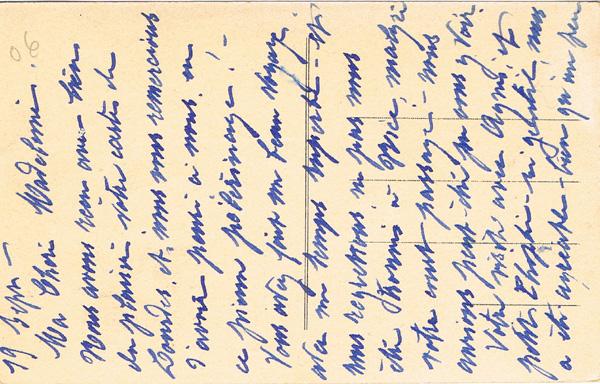 19 Sept -
Ma Chère Madeleine.
06
Nous avons reçu avec bien
du plaisir votre carte de
Lourdes, et nous vous remercions
d'avoir pensé à nous, en
ce pieux pélérinage! -
Vous avez fait un beau voyage
avec un temps superbe - et
nous regrettions ne pas nous
être trouvés à malgré
votre court passage! - nous
aurions peut-être pu vous y voir.
Votre visite avec Agnès, et
petite si gentille nous
a été agréable - bien qu'un peu